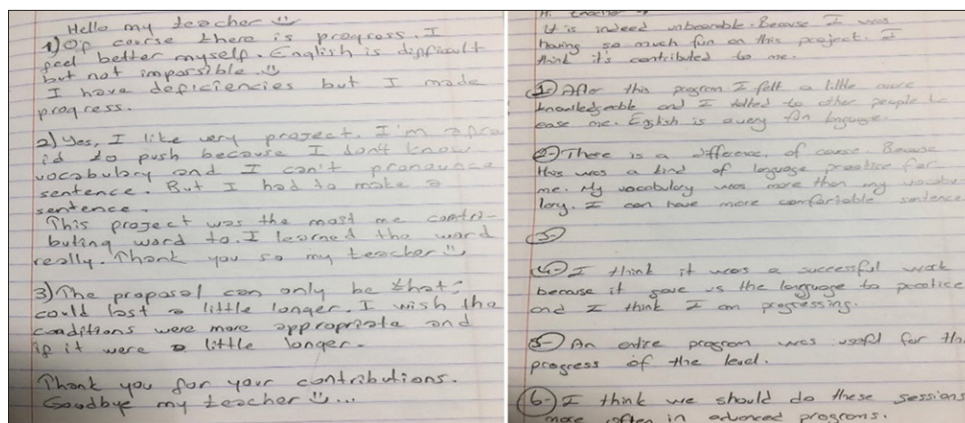 Hello my teacher
1) Of course there is progress. I
feel better myself. English is difficult
but not impossible.
I have deficiencies but I made
progress.
2) Yes, I like very project. I'm afra
id to push because I don't know
vocabulary and I can't pronounce
sentence. But I had to make a
sentence.
This project was the most me contri-
buting word to. I learned the word
really. Thank you so my teacher
3) The proposal can only be that:
could last a little longer. I wish the
conditions were more appropriate and
if it were a little longer.
Thank you for your contributions.
Goodbye my teacher ...
Hi teacher
It is indeed unbearable. Because I was
having so much fun on this project. I
think it's contributed to me.
1-) After this program I felt a little more
knowledgeable and I talked to other people
ease me. Eglish is a very fun lnguage.
2-) There is a difference, of course. Because
this was a kind of language practice for
me. My vocabulary was more then my vocabu
lary. I can have more comfortable sentence
3-
4-) I think it was a successful work
because it gave us the language to practice
and I think I am progressing.
5-) An entire program was useful for the
progress of the level.
6-) I think we should do these sessions
more often in advanced programs.